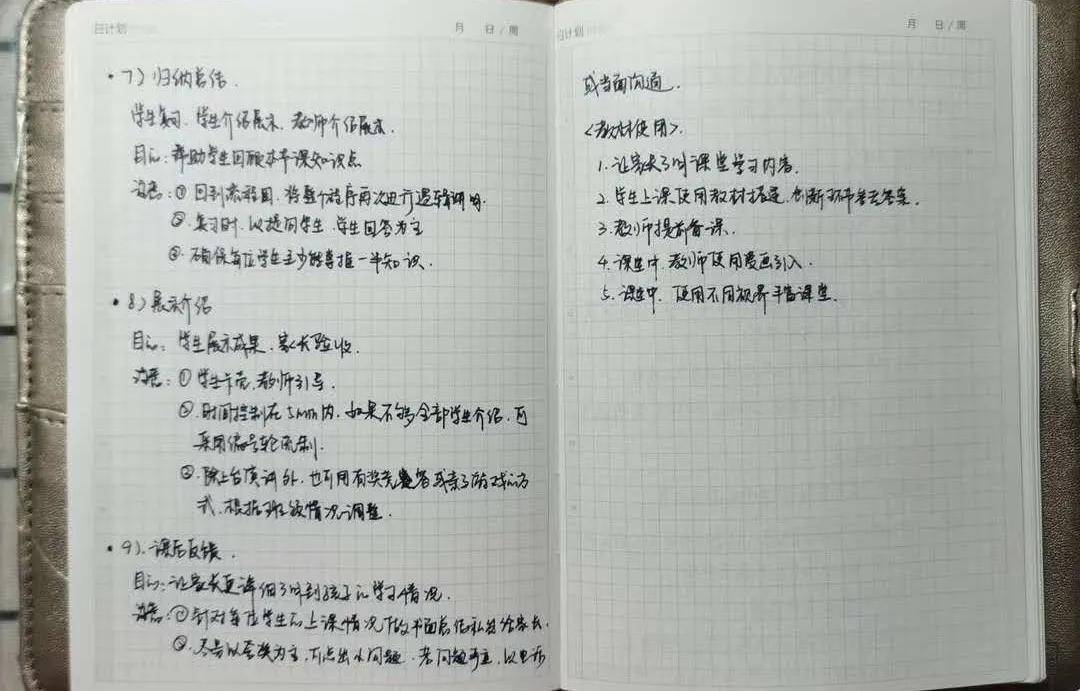 日计划
月 日/周
·7) 归纳总结.
学生复习、学生介绍展示、教师介绍展示.
目的: 帮助学生回顾本节课知识点
注意: ① 回到流程图, 将整个程序再次进行逻辑说明.
② 复习时, 以提问学生, 学生回答为主
③ 确保每位学生至少能掌握一半知识.
·8) 展示介绍
目的: 学生展示成果, 家长验收.
注意: ① 学生卡壳, 教师引导.
② 时间控制在5min内, 如果不够全部学生介绍, 可
采用编号轮流制.
③ 除上台演讲外, 也可用有奖竞答或亲子游戏的方
式, 根据班级情况调整.
·9). 课后反馈.
目的: 让家长更详细了解到孩子的学习情况.
注意: ① 针对每位学生的上课情况下做书面总结私发给家长.
② 尽量以夸奖为主, 可点出小问题, 若问题严重, 以电话
日计划
月 日/周
或当面沟通.
<教材使用>.
1. 让家长了解课堂学习内容.
2. 学生上课使用教材搭建, 创新环节参考答案.
3. 教师提前备课.
4. 课堂中, 教师使用漫画引入.
5. 课堂中, 使用不用视界丰富课堂.